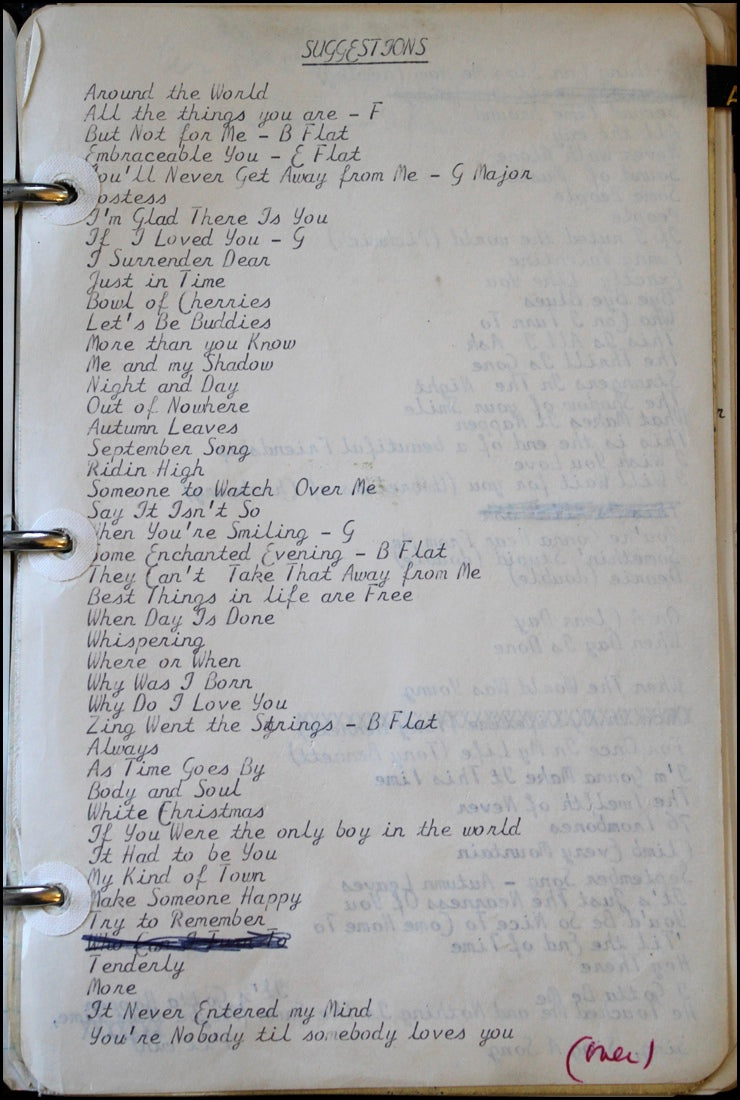 SUGGESTIONS
Around the World
All the things you are - F
But Not for Me - B Flat
Embraceable You - E Flat
You'll Never Get Away from Me - G Major
ostess
I'm Glad There Is You
If I Loved You - G
I Surrender Dear
Just in Time
Bowl of Cherries
Let's Be Buddies
More than you Know
Me and my Shadow
Night and Day
Out of Nowhere
Autumn Leaves
September Song
Ridin High
Someone to Watch Over Me
Say It Isn't So
When You're Smiling - G
Some Enchanted Evening - B Flat
They Can't Take That Away from Me
Best Things in life are Free
When Day Is Done
Whispering
Where or When
Why Was I Born
Why Do I Love You
Zing Went the Strings - B Flat
Always
As Time Goes By
Body and Soul
White Christmas
If You Were the only boy in the world
It Had to be You
My Kind of Town
Make Someone Happy
Try to Remember
Who Can I Turn To
Tenderly
More
It Never Entered my Mind
You're Nobody til somebody loves you
(over)